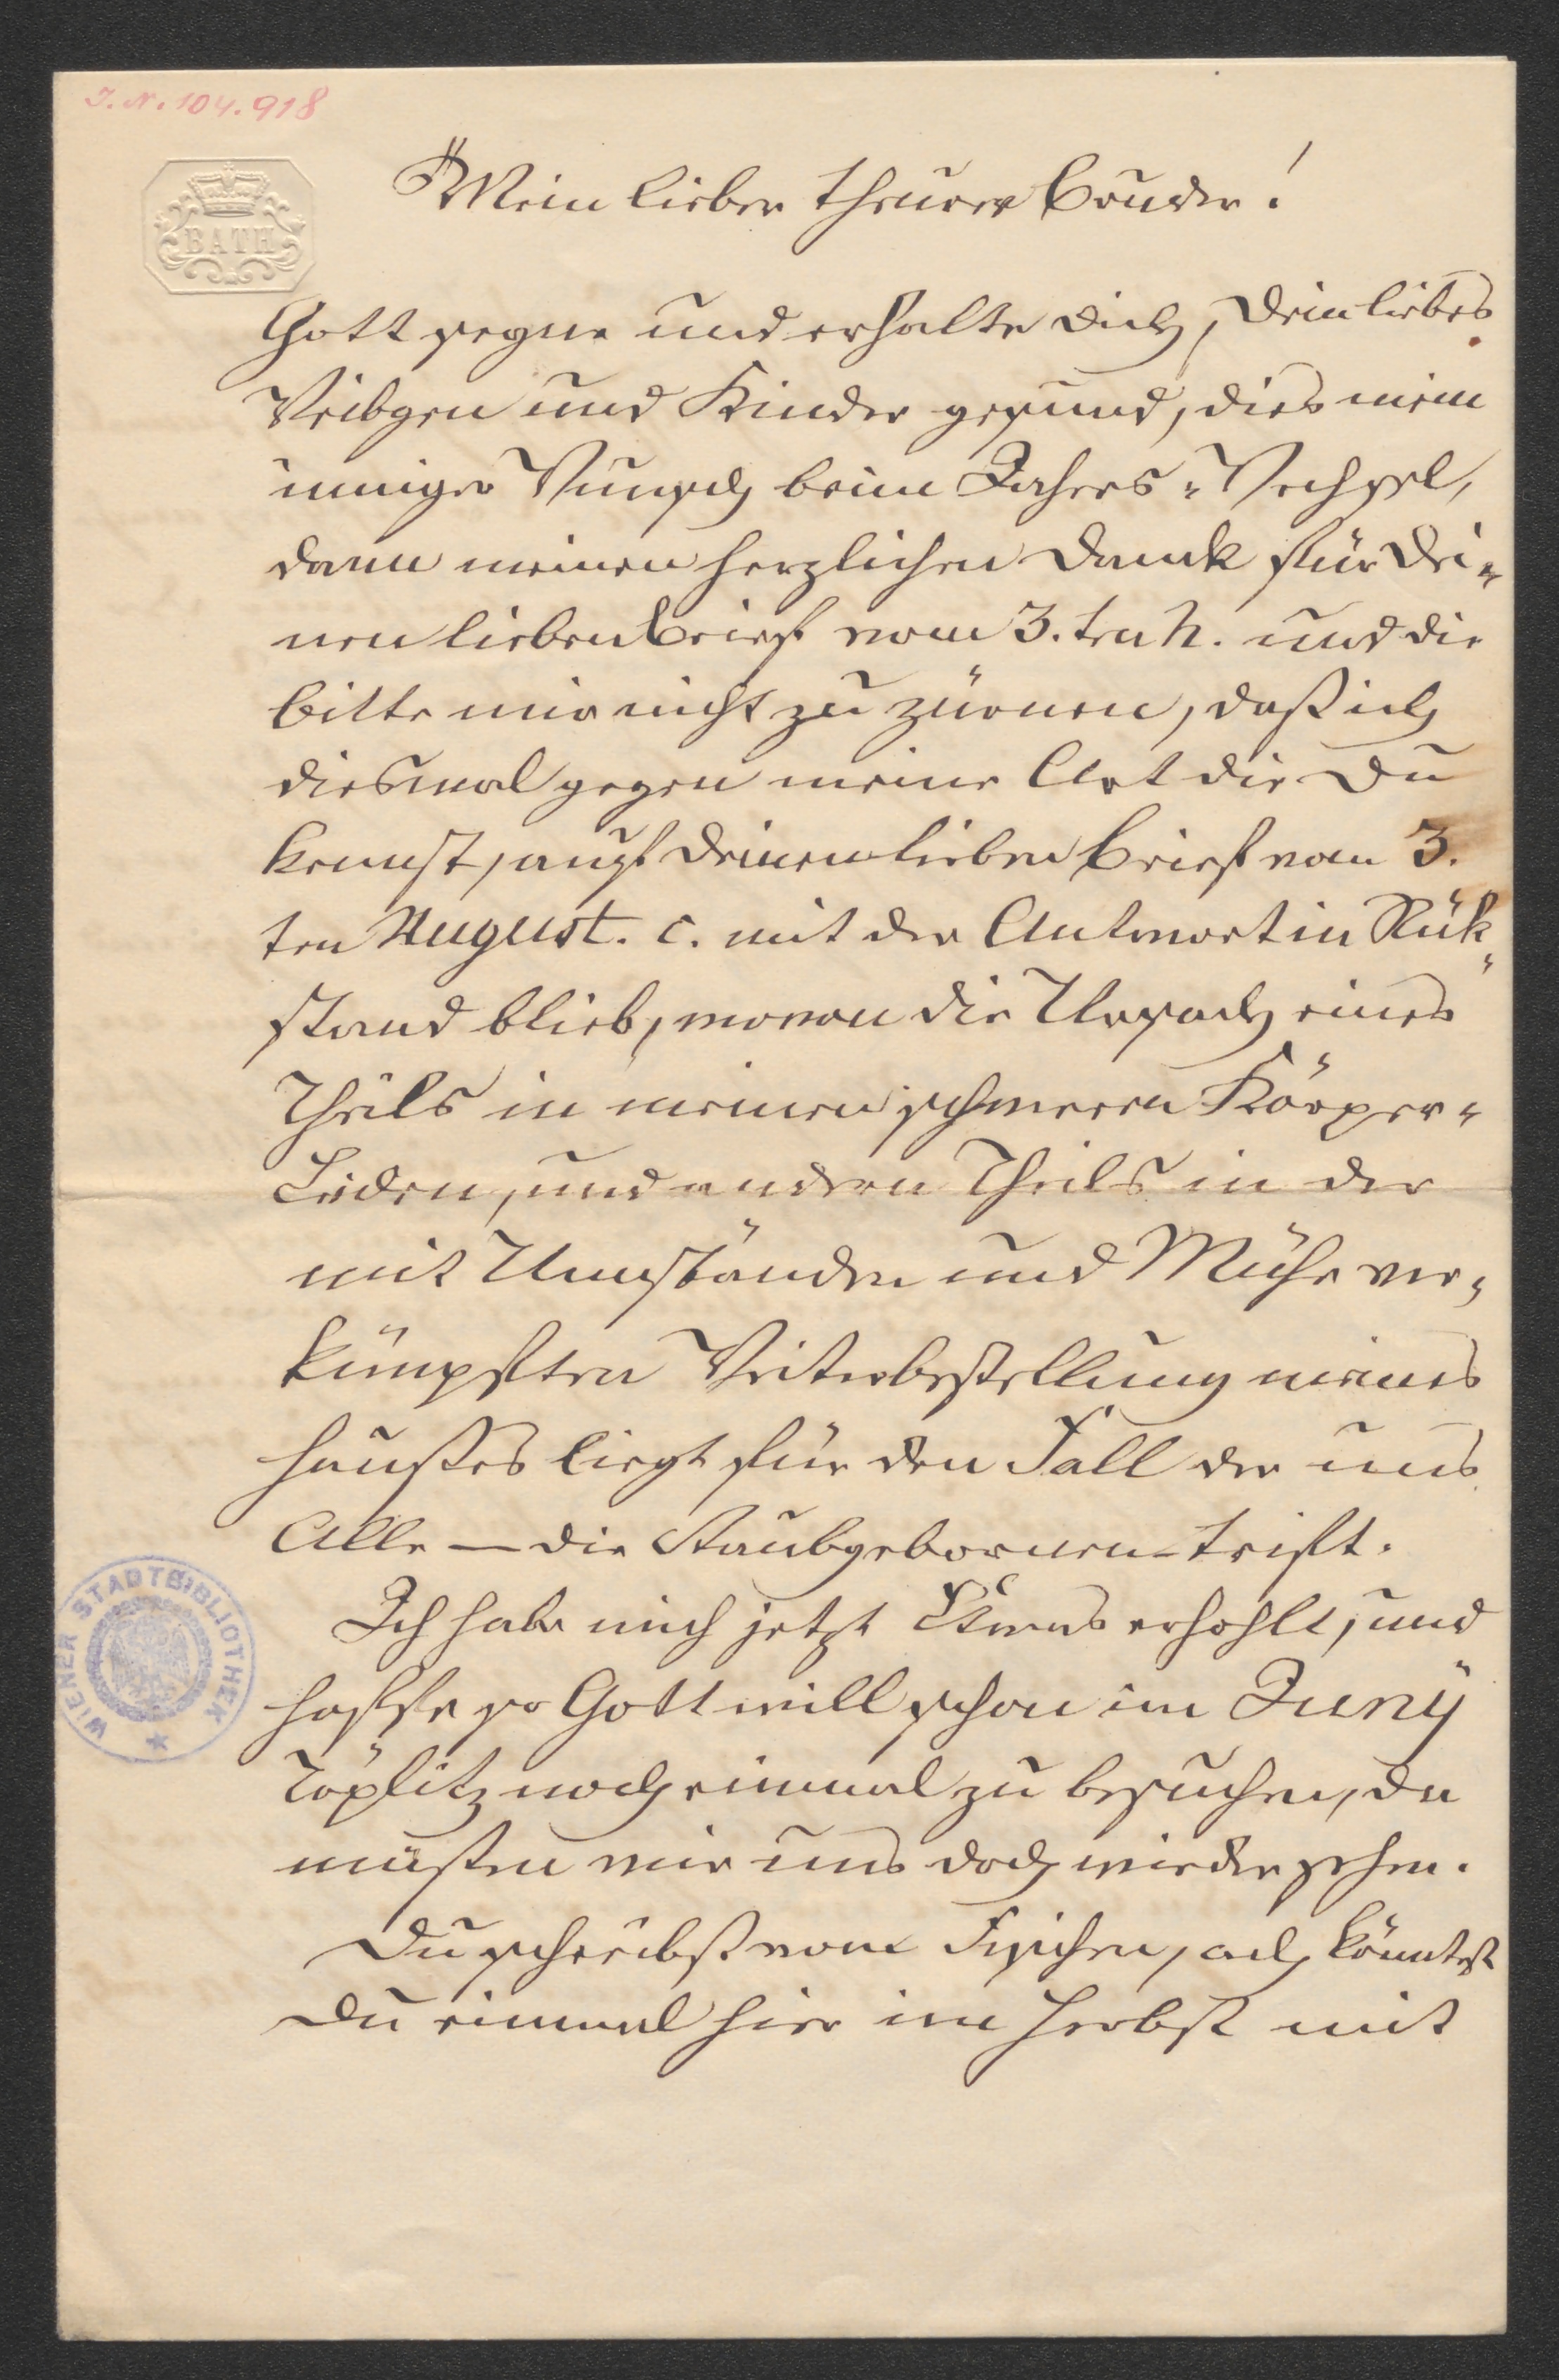 I. N. 104.918
BATH
Mein lieber theurer Bruder!
Gott segne und erhalte dich, dein liebes
Weibgen und Kinder gesund, dies mein
inniger Wunsch beim Jahres-Wechsel,
dann meinen herzlichen Dank für dei-
nen lieben Brief vom 3. ten h. und die
Bitte mir nicht zu zürnen, daß ich
diesmal gegen meine Art die du
kennst, auf deinen lieben Brief vom 3.
ten August. c. mit der Antwort in Rük-
stand blieb, wovon die Ursach eines
Theils in meinen schweren Körper-
Leiden, und andern Theils in der
mit Umständen und Mühe ver-
knüpften Weiterbestellung meines
Haußes liegt für den Fall der uns
Alle — die Staubgebornen - trift.
Ich habe mich jetzt Etwas erhohlt, und
hoffe so Gott will schon im Juny
Töplitz noch einmal zu besuchen, da
müsten wir uns doch wieder sehen.
Du schreibst vom, ach könntest
du einmal hier im Herbst mit
WIENER STADTBIBLIOTHEK